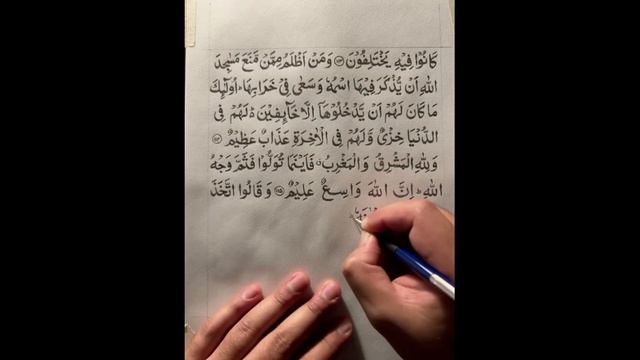 كَانُوْا فِيْهِ يَخْتَلِفُوْنَ ﴿۱۱۳﴾ وَمَنْ اَظْلَمُ مِمَّنْ مَّنَعَ مَسٰجِدَ
اللهِ اَنْ يُّذْكَرَ فِيْهَا اسْمُهٗ وَسَعٰى فِيْ خَرَابِهَا ؕ اُولٰٓئِكَ
مَا كَانَ لَهُمْ اَنْ يَّدْخُلُوْهَاۤ اِلَّا خَآئِفِيْنَ ؕ لَهُمْ فِى
الدُّنْيَا خِزْىٌ وَّلَهُمْ فِى الْاٰخِرَةِ عَذَابٌ عَظِيْمٌ ﴿۱۱۴﴾
وَلِلّٰهِ الْمَشْرِقُ وَالْمَغْرِبُ ۗ فَاَيْنَمَا تُوَلُّوْا فَثَمَّ وَجْهُ
اللهِ ؕ اِنَّ اللهَ وَاسِعٌ عَلِيْمٌ ﴿۱۱۵﴾ وَقَالُوا اتَّخَذَ